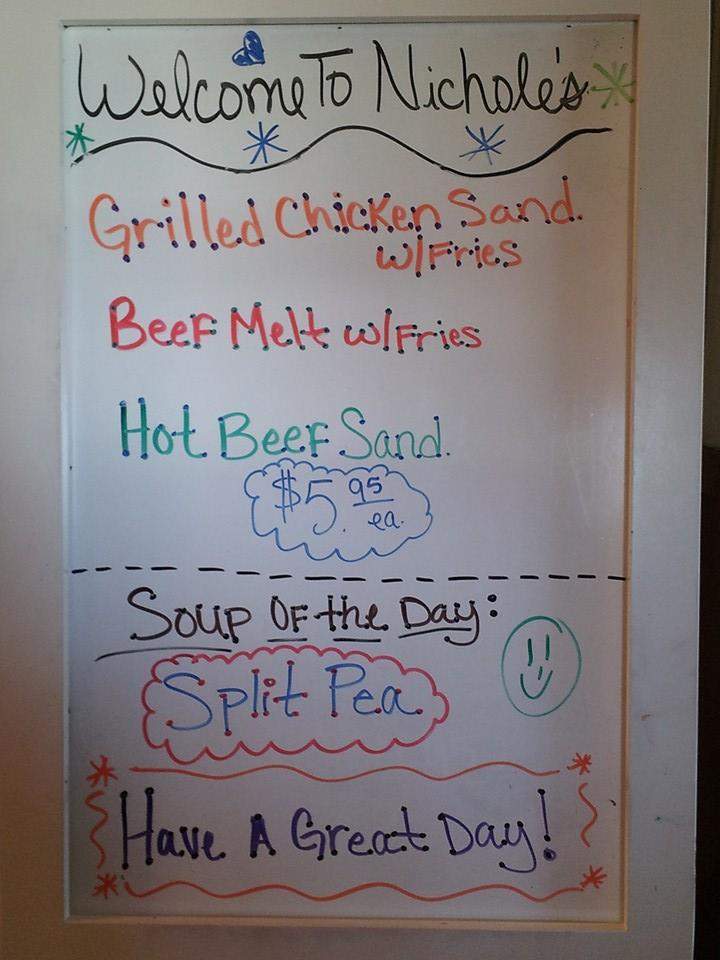 Welcome To Nichole's
Grilled Chicken Sand.
w/Fries
Beef Melt w/Fries
Hot Beef Sand.
$5.95 ea.
Soup Of the Day:
Split Pea
Have A Great Day!